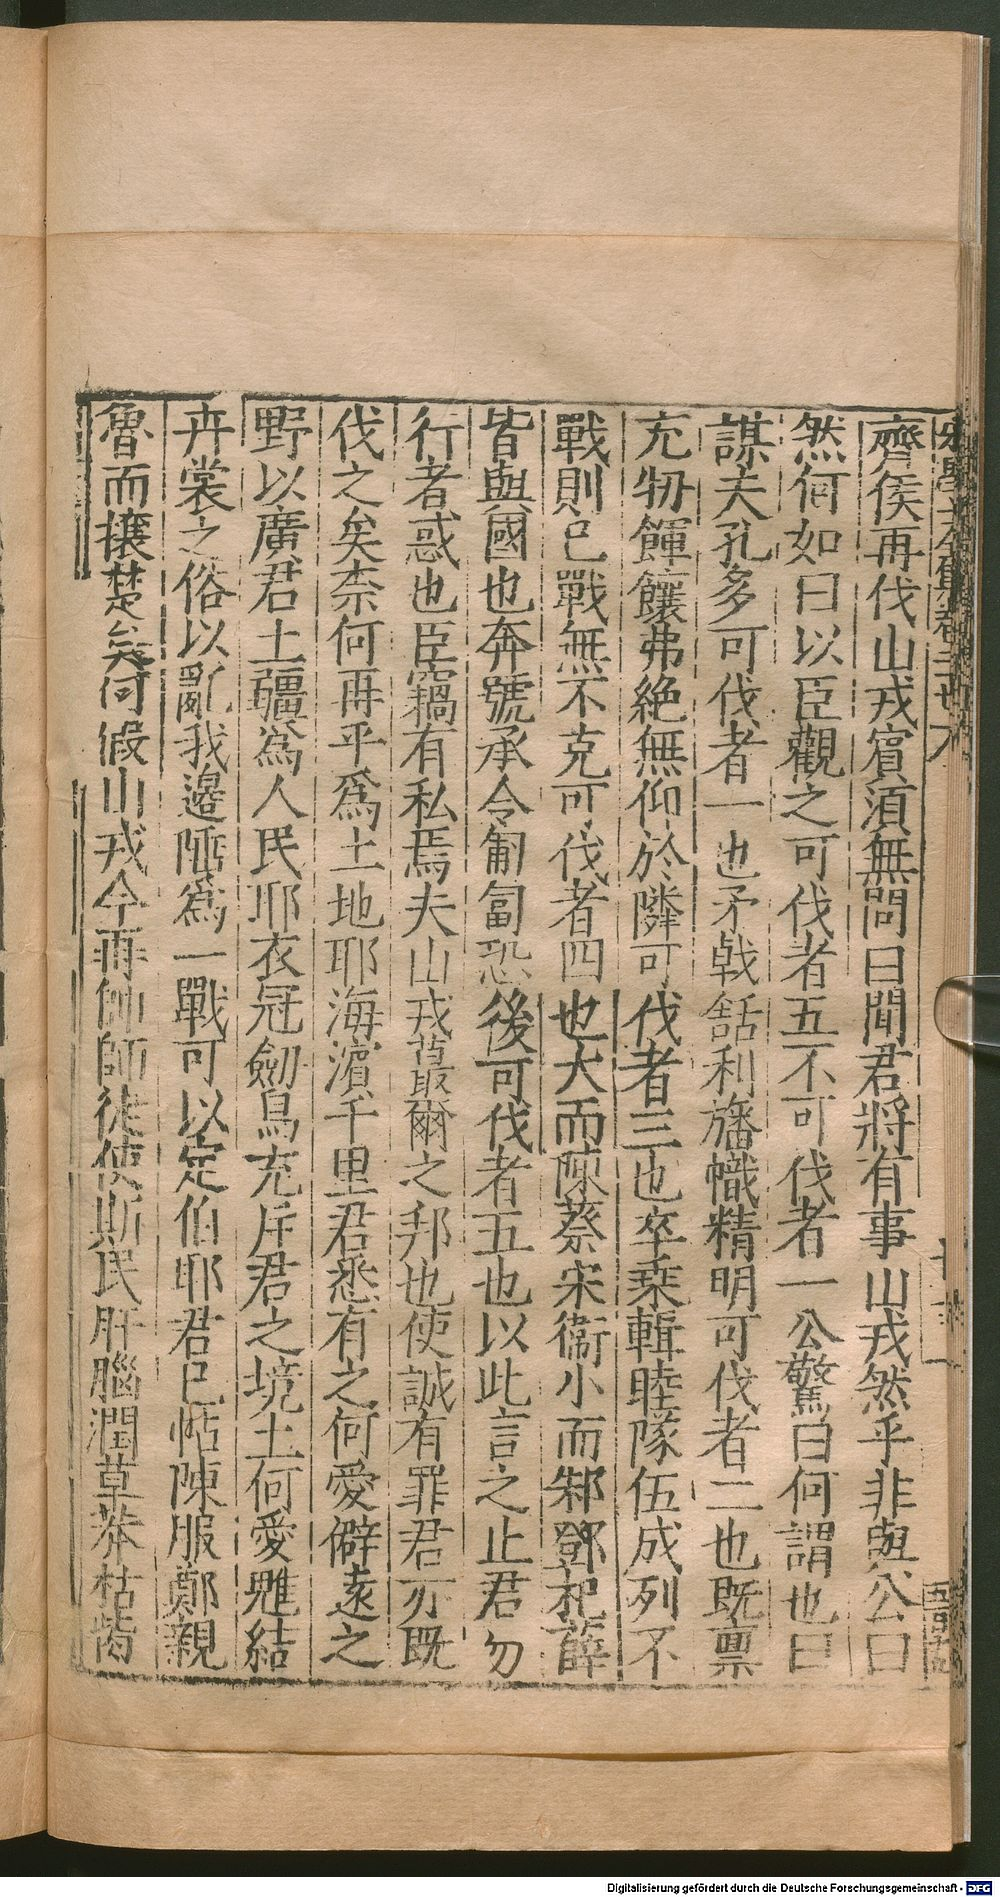 齊侯再伐山戎賓須無問曰聞君將有事山戎然乎非與公曰
然何如曰以臣觀之可伐者五不可伐者一公驚曰何謂也曰
謀夫孔多可伐者一也矛戟銛利旛幟精明可伐者二也既禀
充牣餫饟弗絶無仰於隣可伐者三也卒乗輯睦隊伍成列不
戰則已戰無不克可伐者四也大而陳蔡宋衞小而邾鄧杞薛
皆與國也奔號承令匍匐恐後可伐者五也以此言之止君勿
行者惑也臣竊有私焉夫山戎蕞爾之邦也使誠有罪君亦既
伐之矣柰何再乎爲土地耶海濵千里君悉有之何愛僻逺之
野以廣君土疆爲人民耶衣冠劒舄充斥君之境土何愛魋結
卉裳之俗以亂我邊陲爲一戰可以定伯耶君已怗陳服鄭親
魯而攘楚矣何假山戎今再帥師徒使斯民肝腦潤草莽枯骴
Digitalisierung gefördert durch die Deutsche Forschungsgemeinschaft - DFG